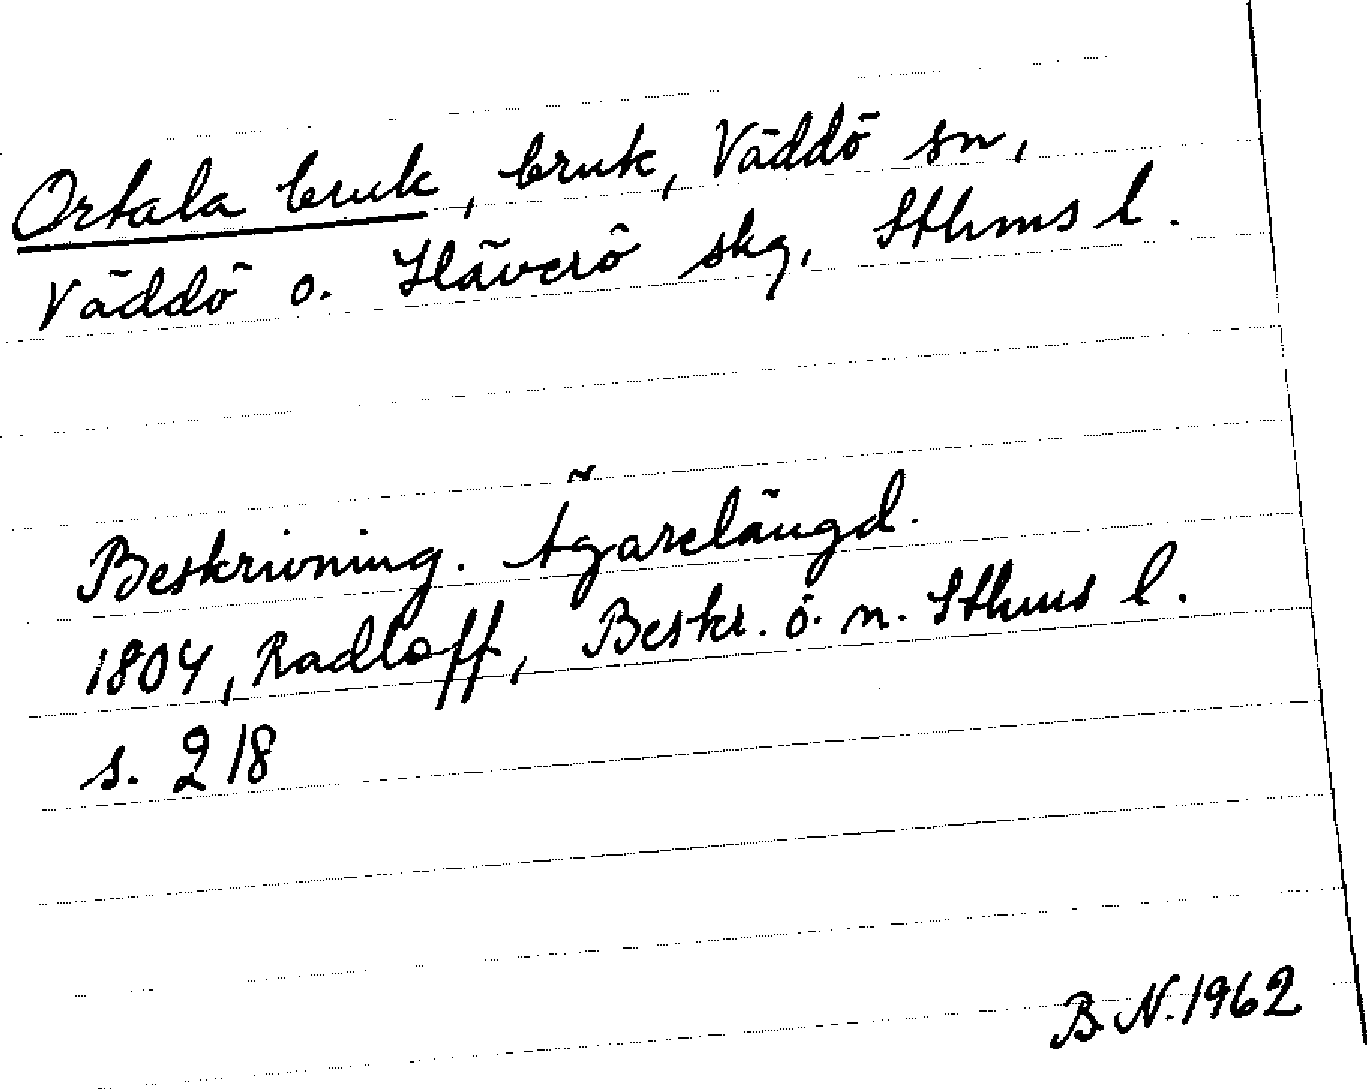 Ortala bruk, bruk, Väddö sn,
Väddö o. Häverö skg, Sthms l.
Beskrivning. Ägarelängd.
1804, Radloff, Beskr. ö. n. Sthms l.
s. 218
B.N. 1962